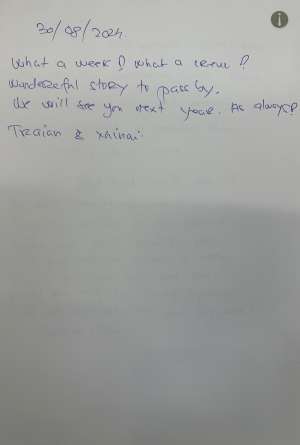 30/08/2024
What a week! What a crew!
Wonderful story to pass by.
We will see you next year. As always!
Traian &